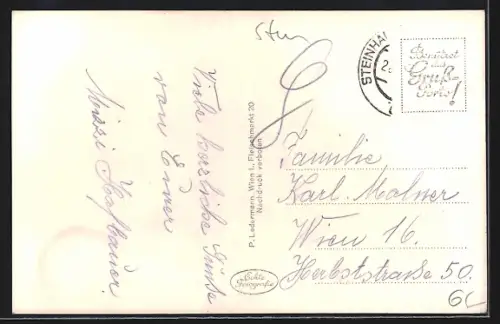 Viele herzliche Grüße
von Einer
Mitzi Hofbauer.
P. Ledermann Wien I., Fleischmarkt 20
Nachdruck verboten
Echte
Fotografie
Stein
STEINHA
Benützet
das
Gruß-
Porto!
Familie
Karl Molner
Wien 16.
Herbststraße 50.
6L